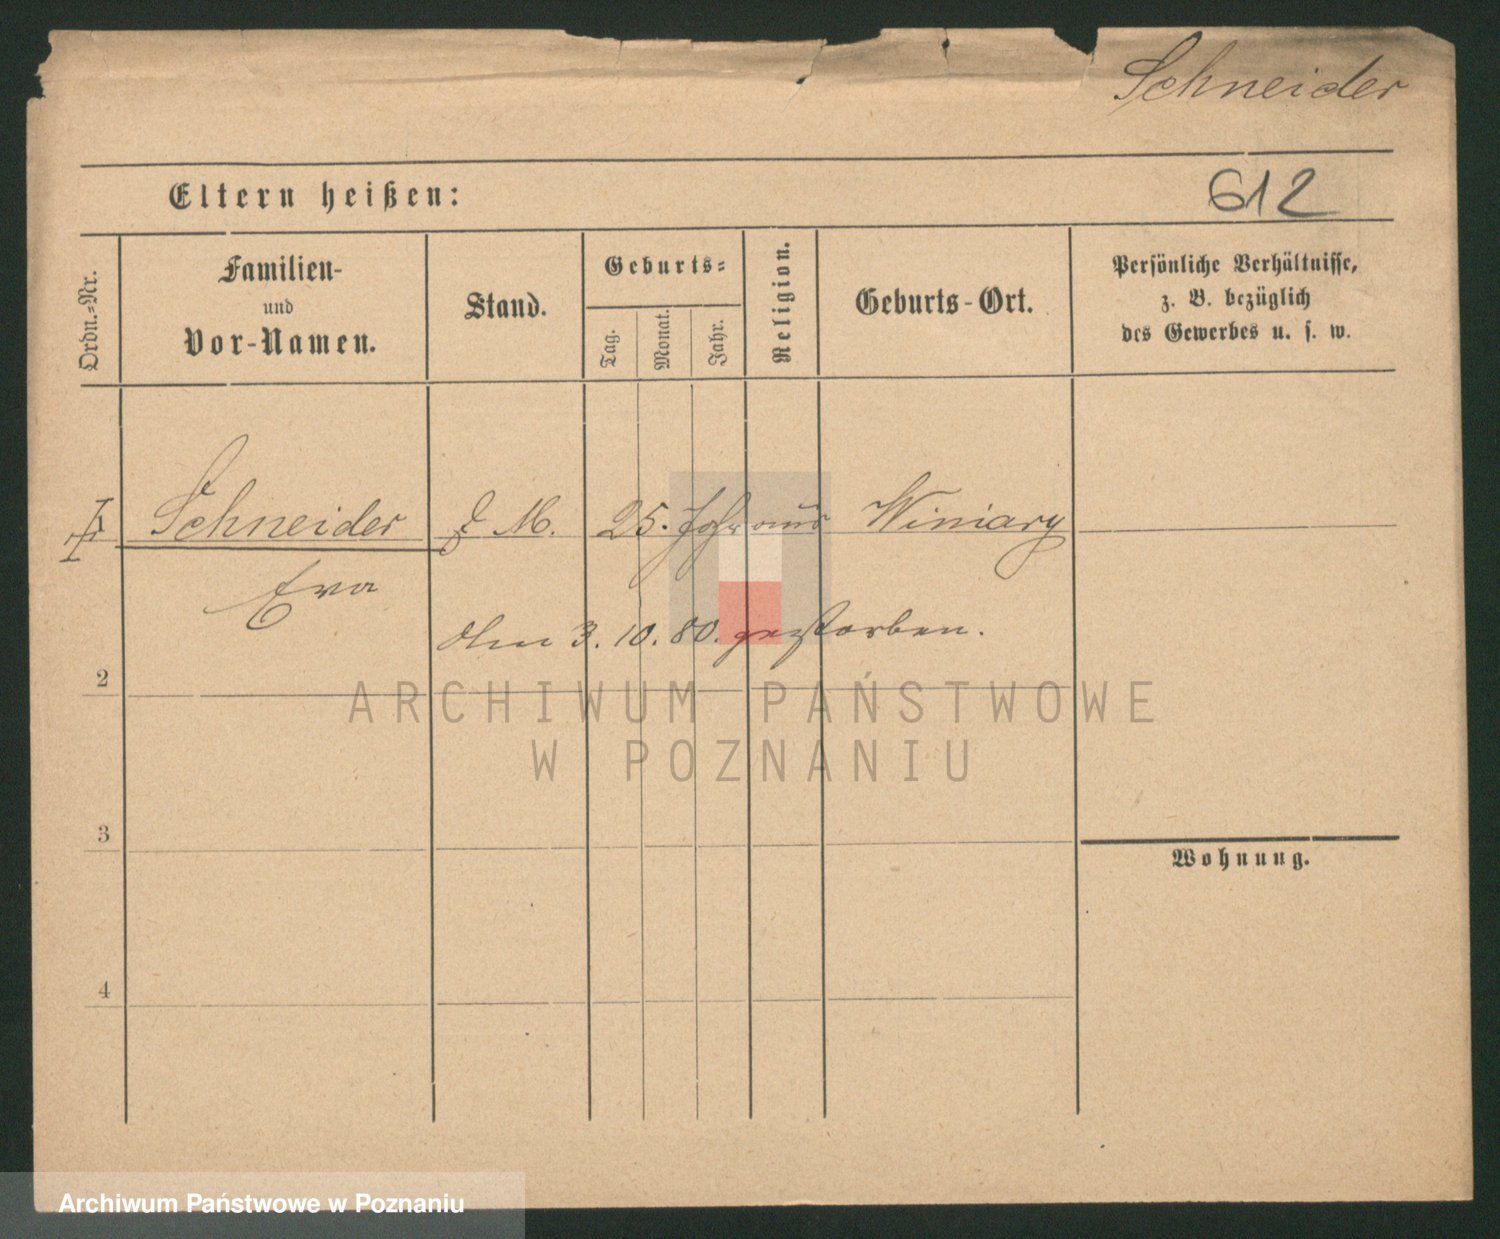 Schneider
Eltern heißen:
612
Ordn.-Nr.
Familien-
und
Vor-Namen.
Stand.
Geburts-
Tag.
Monat.
Jahr.
Religion.
Geburts-Ort.
Persönliche Verhältnisse,
z. B. bezüglich
des Gewerbes u. s. w.
Schneider M. 25. Jahr aus Winiary
Eva
Am 3. 10. 80. gestorben.
2
ARCHIWUM PAŃSTWOWE
W POZNANIU
3
Wohnung.
4
Archiwum Państwowe w Poznaniu